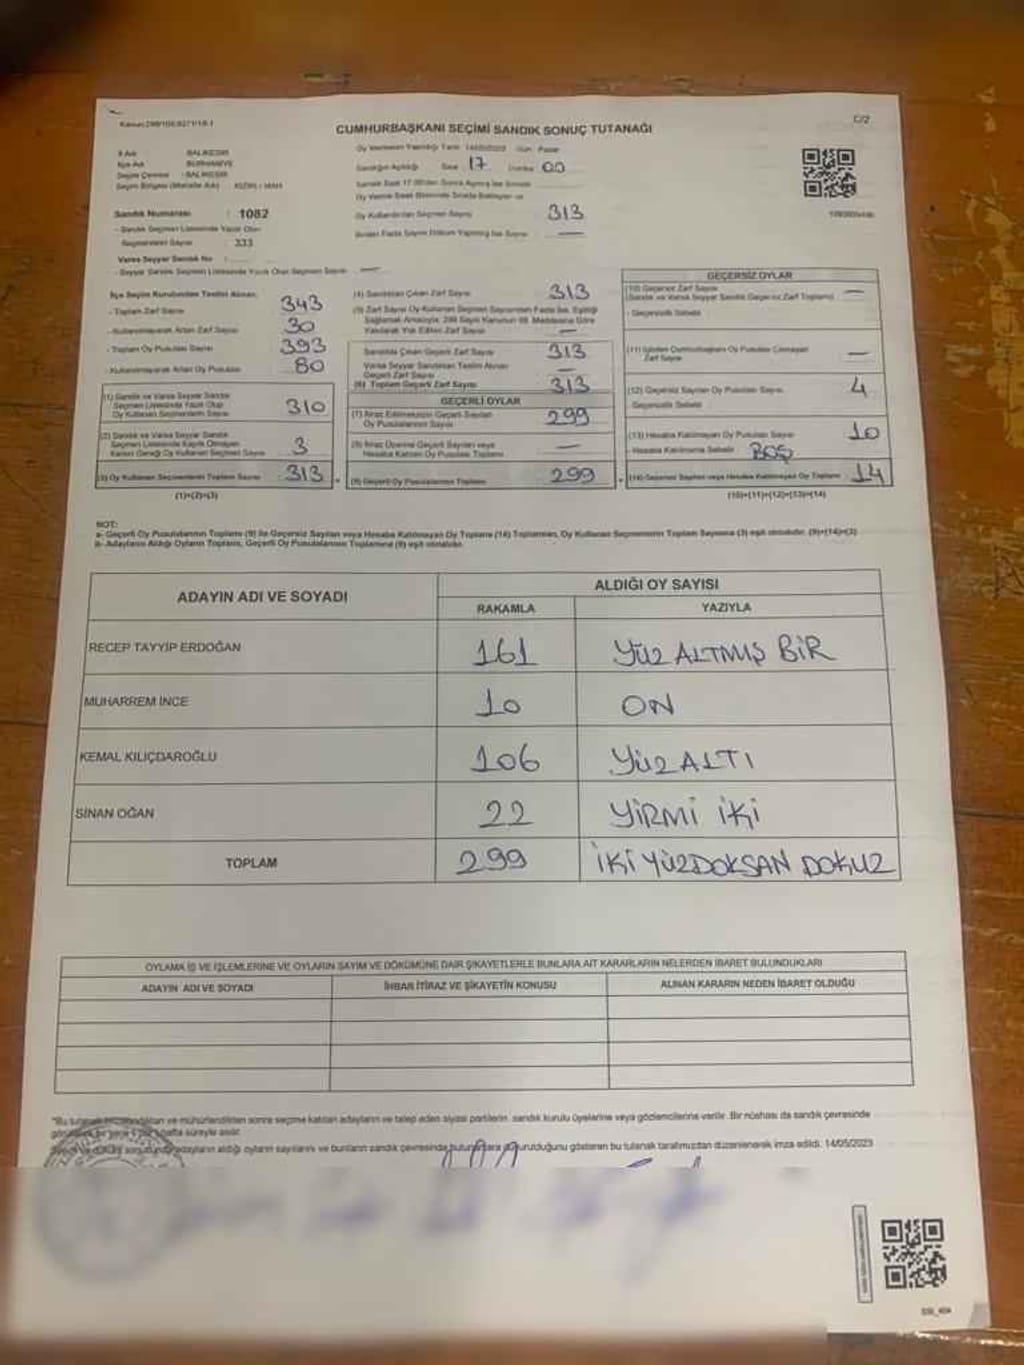 C/2
CUMHURBAŞKANI SEÇİMİ SANDIK SONUÇ TUTANAĞI
İl Adı : BALIKESİR
İlçe Adı : BURHANİYE
Seçim Çevresi : BALIKESİR
Oy Vermenin Yapıldığı Tarih 14/05/2023 Gün Pazar
Sandığın Açıldığı Saat 17 Dakika 00
Sandık Numarası : 1082
- Sandık Seçmen Listesinde Yazılı Olan
Seçmenlerin Sayısı : 333
Varsa Seyyar Sandık No :
- Seyyar Sandık Seçmen Listesinde Yazılı Olan Seçmen Sayısı —
Oy Kullanan Seçmen Sayısı 313
İlçe Seçim Kurulundan Teslim Alınan:
- Toplam Zarf Sayısı 343
- Kullanılmayarak Artan Zarf Sayısı 30
- Toplam Oy Pusulası Sayısı 393
- Kullanılmayarak Artan Oy Pusulası 80
(1) Sandık ve Varsa Seyyar Sandık
Seçmen Listesinde Yazılı Olup
Oy Kullanan Seçmenlerin Sayısı 310
(2) Sandık ve Varsa Seyyar Sandık
Seçmen Listesinde Kayıtlı Olmayan
Kanun Gereği Oy Kullanan Seçmen Sayısı 3
(3) Oy Kullanan Seçmenlerin Toplam Sayısı 313
(1)+(2)=(3)
(4) Sandıktan Çıkan Zarf Sayısı 313
Sandıkta Çıkan Geçerli Zarf Sayısı 313
Varsa Seyyar Sandıktan Teslim Alınan
Geçerli Zarf Sayısı —
(6) Toplam Geçerli Zarf Sayısı 313
GEÇERLİ OYLAR
(7) İtiraz Edilmeksizin Geçerli Sayılan
Oy Pusulalarının Sayısı 299
(8) İtiraz Üzerine Geçerli Sayılan veya
Hesaba Katılan Oy Pusulası Toplamı —
(9) Geçerli Oy Pusulalarının Toplamı 299
GEÇERSİZ OYLAR
(10) Geçersiz Zarf Sayısı —
(Sandık ve Varsa Seyyar Sandık Geçersiz Zarf Toplamı)
- Geçersizlik Sebebi
Zarf Sayısı —
(12) Geçersiz Sayılan Oy Pusulası Sayısı 4
Geçersizlik Sebebi
(13) Hesaba Katılmayan Oy Pusulası Sayısı 10
- Hesaba Katılmama Sebebi BOŞ
(14) Geçersiz Sayılan veya Hesaba Katılmayan Oy Toplamı 14
(10)+(11)+(12)+(13)=(14)
NOT:
a- Geçerli Oy Pusulalarının Toplamı (9) ile Geçersiz Sayılan veya Hesaba Katılmayan Oy Toplamı (14) Toplamları, Oy Kullanan Seçmenlerin Toplam Sayısına (3) eşit olmalıdır. (9)+(14)=(3)
b- Adayların Aldığı Oyların Toplamı, Geçerli Oy Pusulalarının Toplamına (9) eşit olmalıdır.
ADAYIN ADI VE SOYADI
ALDIĞI OY SAYISI
RAKAMLA YAZIYLA
RECEP TAYYİP ERDOĞAN 161 YÜZ ALTMIŞ BİR
MUHARREM İNCE 10 ON
KEMAL KILIÇDAROĞLU 106 YÜZ ALTI
SİNAN OĞAN 22 YİRMİ İKİ
TOPLAM 299 İKİ YÜZ DOKSAN DOKUZ
OYLAMA İŞ VE İŞLEMLERİNE VE OYLARIN SAYIM VE DÖKÜMÜNE DAİR ŞİKAYETLERLE BUNLARA AİT KARARLARIN NELERDEN İBARET BULUNDUKLARI
ADAYIN ADI VE SOYADI İHBAR İTİRAZ VE ŞİKAYETİN KONUSU ALINAN KARARIN NEDEN İBARET OLDUĞU
sonra seçime katılan adayların ve talep eden siyasi partilerin, sandık kurulu üyelerine veya gözlemcilerine verilir. Bir nüshası da sandık çevresinde
hafta süreyle asılır.
adayların aldığı oyların sayılarını ve bunların sandık çevresinde gösteren bu tutanak tarafımızdan düzenlenerek imza edildi. 14/05/2023